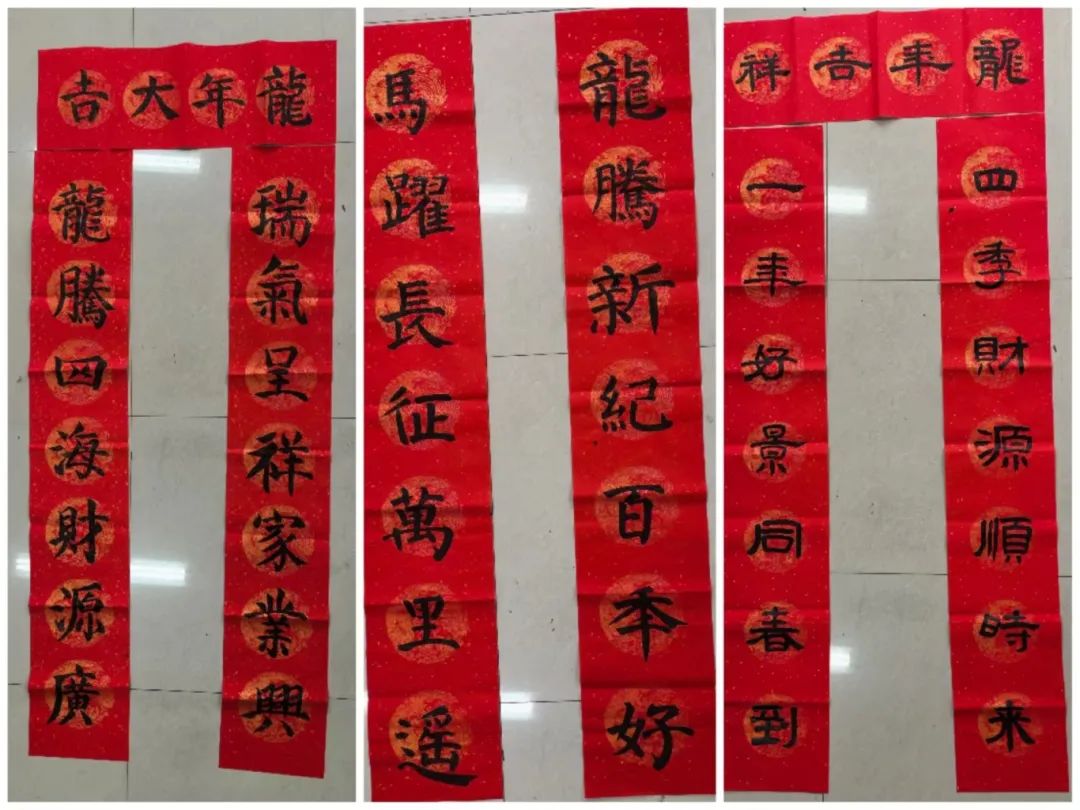 龍年大吉
瑞氣呈祥家業興
龍騰四海財源廣
龍騰新紀百年好
馬躍長征萬里遥
龍年吉祥
四季財源順時来
一年好景同春到